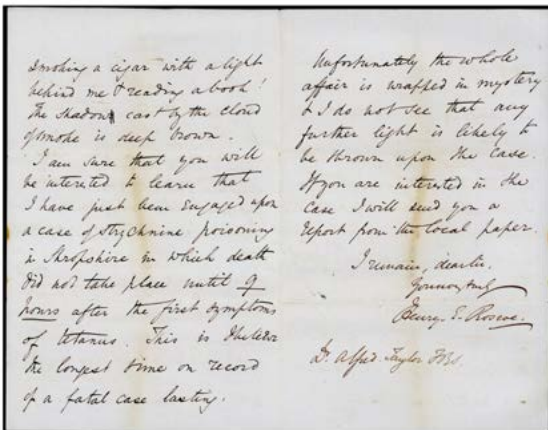 smoking a cigar with a light
behind me & reading a book!
The shadow cast by the cloud
of smoke is deep brown.
I am sure that you will
be interested to learn that
I have just been engaged upon
a case of strychnine poisoning
in Shropshire in which death
did not take place until 9
hours after the first symptoms
of tetanus. This is I believe
the longest time on record
of a fatal case lasting.
Unfortunately the whole
affair is wrapped in mystery
& I do not see that any
further light is likely to
be thrown upon the case.
If you are interested in the
case I will send you a
report from the local paper.
I remain, dear Sir,
Yours truly
Henry E. Roscoe.
Dr. Alfred Taylor FRS.